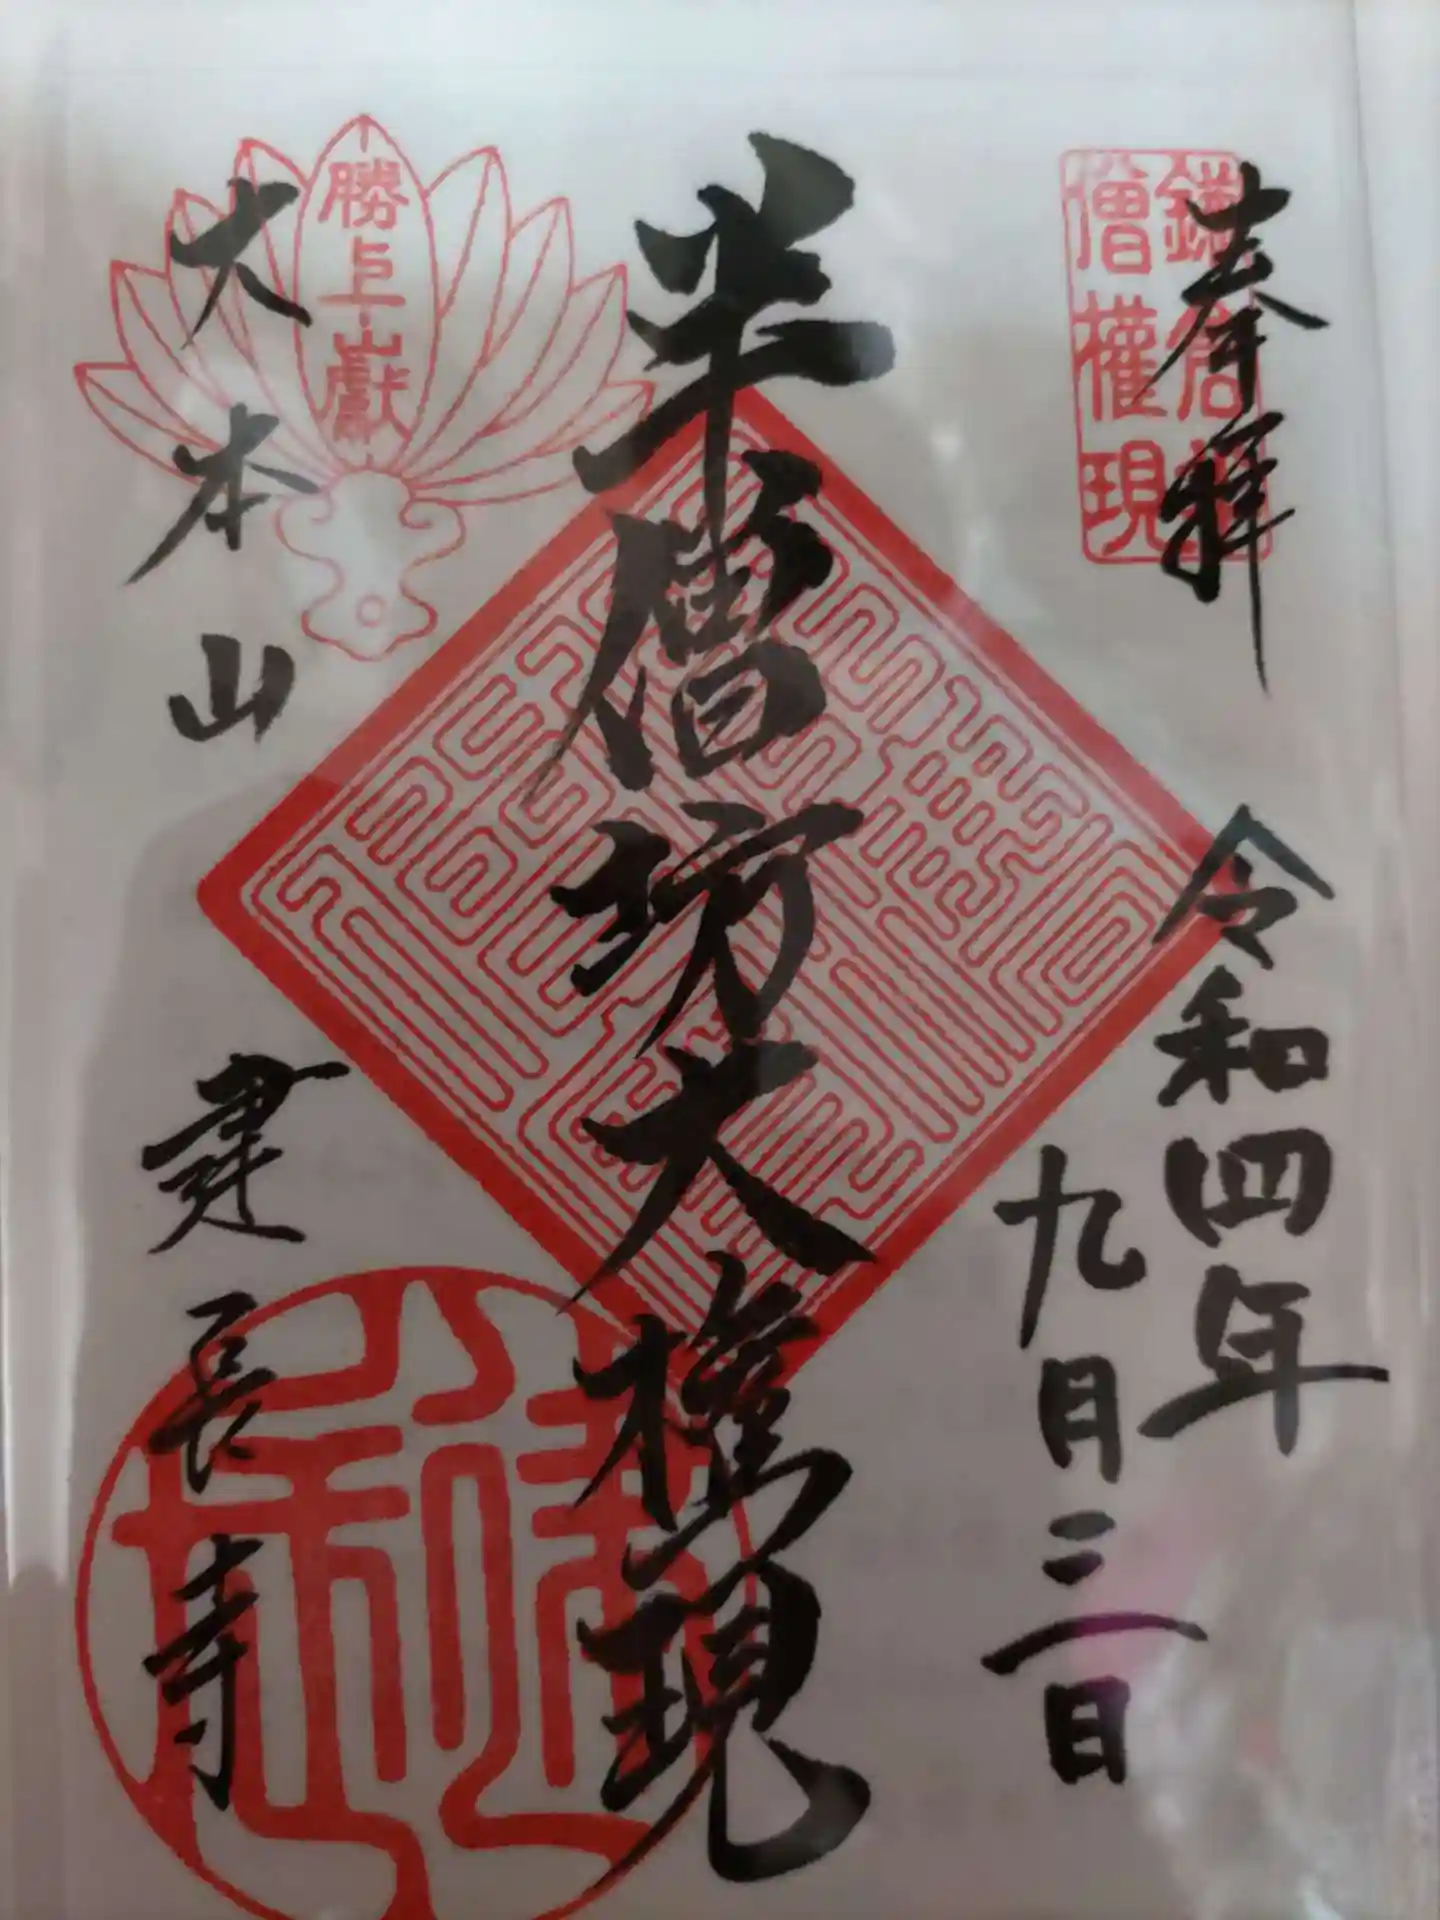 奉拝
令和四年
九月三日
半僧坊大権現
大本山
建長寺
勝上巘
僧權現